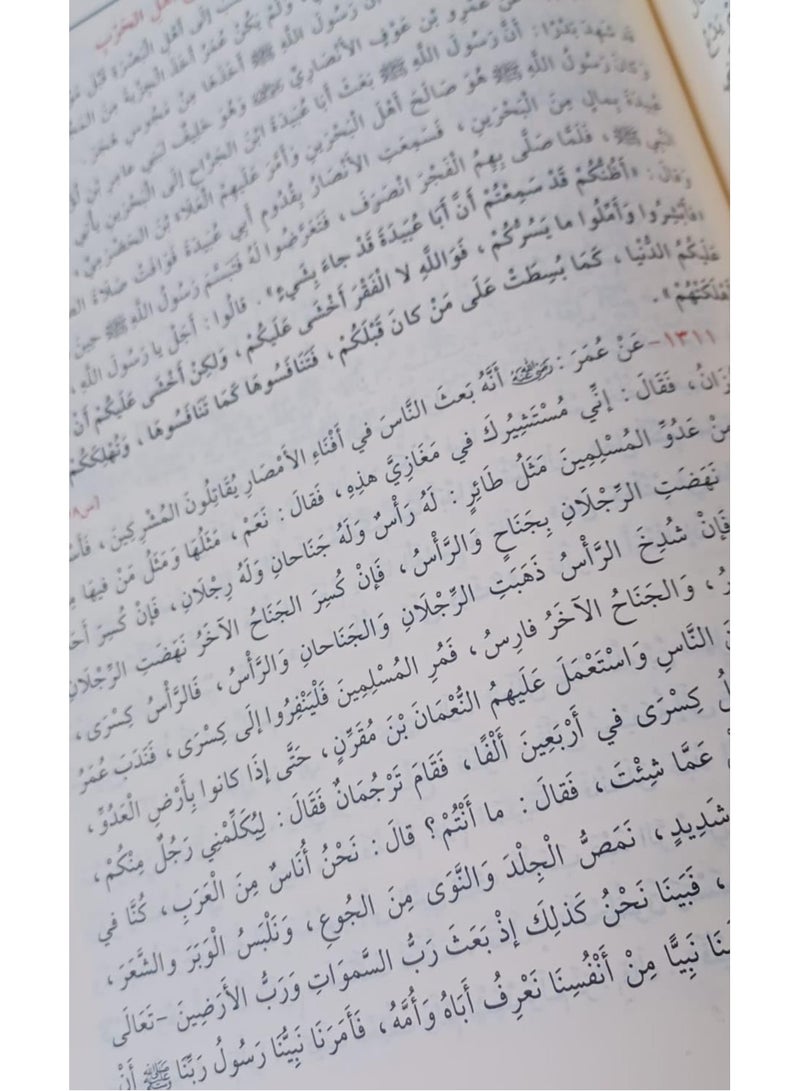 أَهْلِ الحَرْبِ
إِلَى أَهْلِ البَصْرَةِ قَبْلَ
وَلَمْ يَكُنْ عُمَرُ أَخَذَ الْجِزْيَةَ مِنَ
عَنْ عَمْرِو بْنِ عَوْفٍ الأَنْصَارِيِّ رضي الله عنه وَهُوَ حَلِيفٌ لِبَنِي عَامِرِ بْنِ
قَدْ شَهِدَ بَدْرًا: أَنَّ رَسُولَ اللهِ ﷺ بَعَثَ أَبَا عُبَيْدَةَ ابْنَ الْجَرَّاحِ إِلَى الْبَحْرَيْنِ يَأْتِي
وَكَانَ رَسُولُ اللهِ ﷺ هُوَ صَالَحَ أَهْلَ الْبَحْرَيْنِ وَأَمَّرَ عَلَيْهِمُ الْعَلَاءَ بْنَ الْحَضْرَمِيِّ
عُبَيْدَةَ بِمَالٍ مِنَ الْبَحْرَيْنِ، فَسَمِعَتِ الأَنْصَارُ بِقُدُومِ أَبِي عُبَيْدَةَ فَوَافَتْ صَلَاةَ
النَّبِيِّ ﷺ، فَلَمَّا صَلَّى بِهِمُ الْفَجْرَ انْصَرَفَ، فَتَعَرَّضُوا لَهُ فَتَبَسَّمَ رَسُولُ اللهِ ﷺ حِينَ
وَقَالَ: «أَظُنُّكُمْ قَدْ سَمِعْتُمْ أَنَّ أَبَا عُبَيْدَةَ قَدْ جَاءَ بِشَيْءٍ». قَالُوا: أَجَلْ يَا رَسُولَ اللهِ،
«فَأَبْشِرُوا وَأَمِّلُوا مَا يَسُرُّكُمْ، فَوَاللهِ لَا الْفَقْرَ أَخْشَى عَلَيْكُمْ، وَلَكِنْ أَخْشَى عَلَيْكُمْ أَنْ
عَلَيْكُمُ الدُّنْيَا، كَمَا بُسِطَتْ عَلَى مَنْ كَانَ قَبْلَكُمْ، فَتَنَافَسُوهَا كَمَا تَنَافَسُوهَا، وَتُهْلِكَكُمْ
أَهْلَكَتْهُمْ».
١٣١١- عَنْ عُمَرَ: رضي الله عنه أَنَّهُ بَعَثَ النَّاسَ في أَفْنَاءِ الأَمْصَارِ يُقَاتِلُونَ الْمُشْرِكِينَ،
فَقَالَ: إِنِّي مُسْتَشِيرُكَ في مَغَازِيَّ هَذِهِ، فَقَالَ: نَعَمْ، مَثَلُهَا وَمَثَلُ مَنْ فِيهَا
عَدُوِّ المُسْلِمِينَ مَثَلُ طَائِرٍ: لَهُ رَأْسٌ وَلَهُ جَنَاحَانِ وَلَهُ رِجْلَانِ، فَإِنْ كُسِرَ
نَهَضَتِ الرِّجْلَانِ بِجَنَاحٍ وَالرَّأْسُ، فَإِنْ كُسِرَ الجَنَاحُ الآخَرُ نَهَضَتِ الرِّجْلَانِ
فَإِنْ شُدِخَ الرَّأْسُ ذَهَبَتِ الرِّجْلَانِ وَالجَنَاحَانِ وَالرَّأْسُ، فَالرَّأْسُ كِسْرَى،
وَالجَنَاحُ الآخَرُ فَارِسُ، فَمُرِ المُسْلِمِينَ فَلْيَنْفِرُوا إِلَى كِسْرَى، فَنَدَبَ عُمَرُ
النَّاسَ وَاسْتَعْمَلَ عَلَيْهِمُ النُّعْمَانَ بْنَ مُقَرِّنٍ، حَتَّى إِذَا كَانُوا بِأَرْضِ العَدُوِّ،
كِسْرَى في أَرْبَعِينَ أَلْفًا، فَقَامَ تَرْجُمَانٌ فَقَالَ: لِيُكَلِّمْنِي رَجُلٌ مِنْكُمْ،
عَمَّا شِئْتَ، فَقَالَ: مَا أَنْتُمْ؟ قَالَ: نَحْنُ أُنَاسٌ مِنَ الْعَرَبِ، كُنَّا في
شَدِيدٍ، نَمَصُّ الْجِلْدَ وَالنَّوَى مِنَ الْجُوعِ، وَنَلْبَسُ الْوَبَرَ والشَّعَرَ،
فَبَيْنَا نَحْنُ كَذلِكَ إِذْ بَعَثَ رَبُّ السَّموَاتِ وَرَبُّ الأَرَضِينَ -تَعَالَى
نَبِيًّا مِنْ أَنْفُسِنَا نَعْرِفُ أَبَاهُ وَأُمَّهُ، فَأَمَرَنَا نَبِيُّنَا رَسُولُ رَبِّنَا ﷺ أَنْ